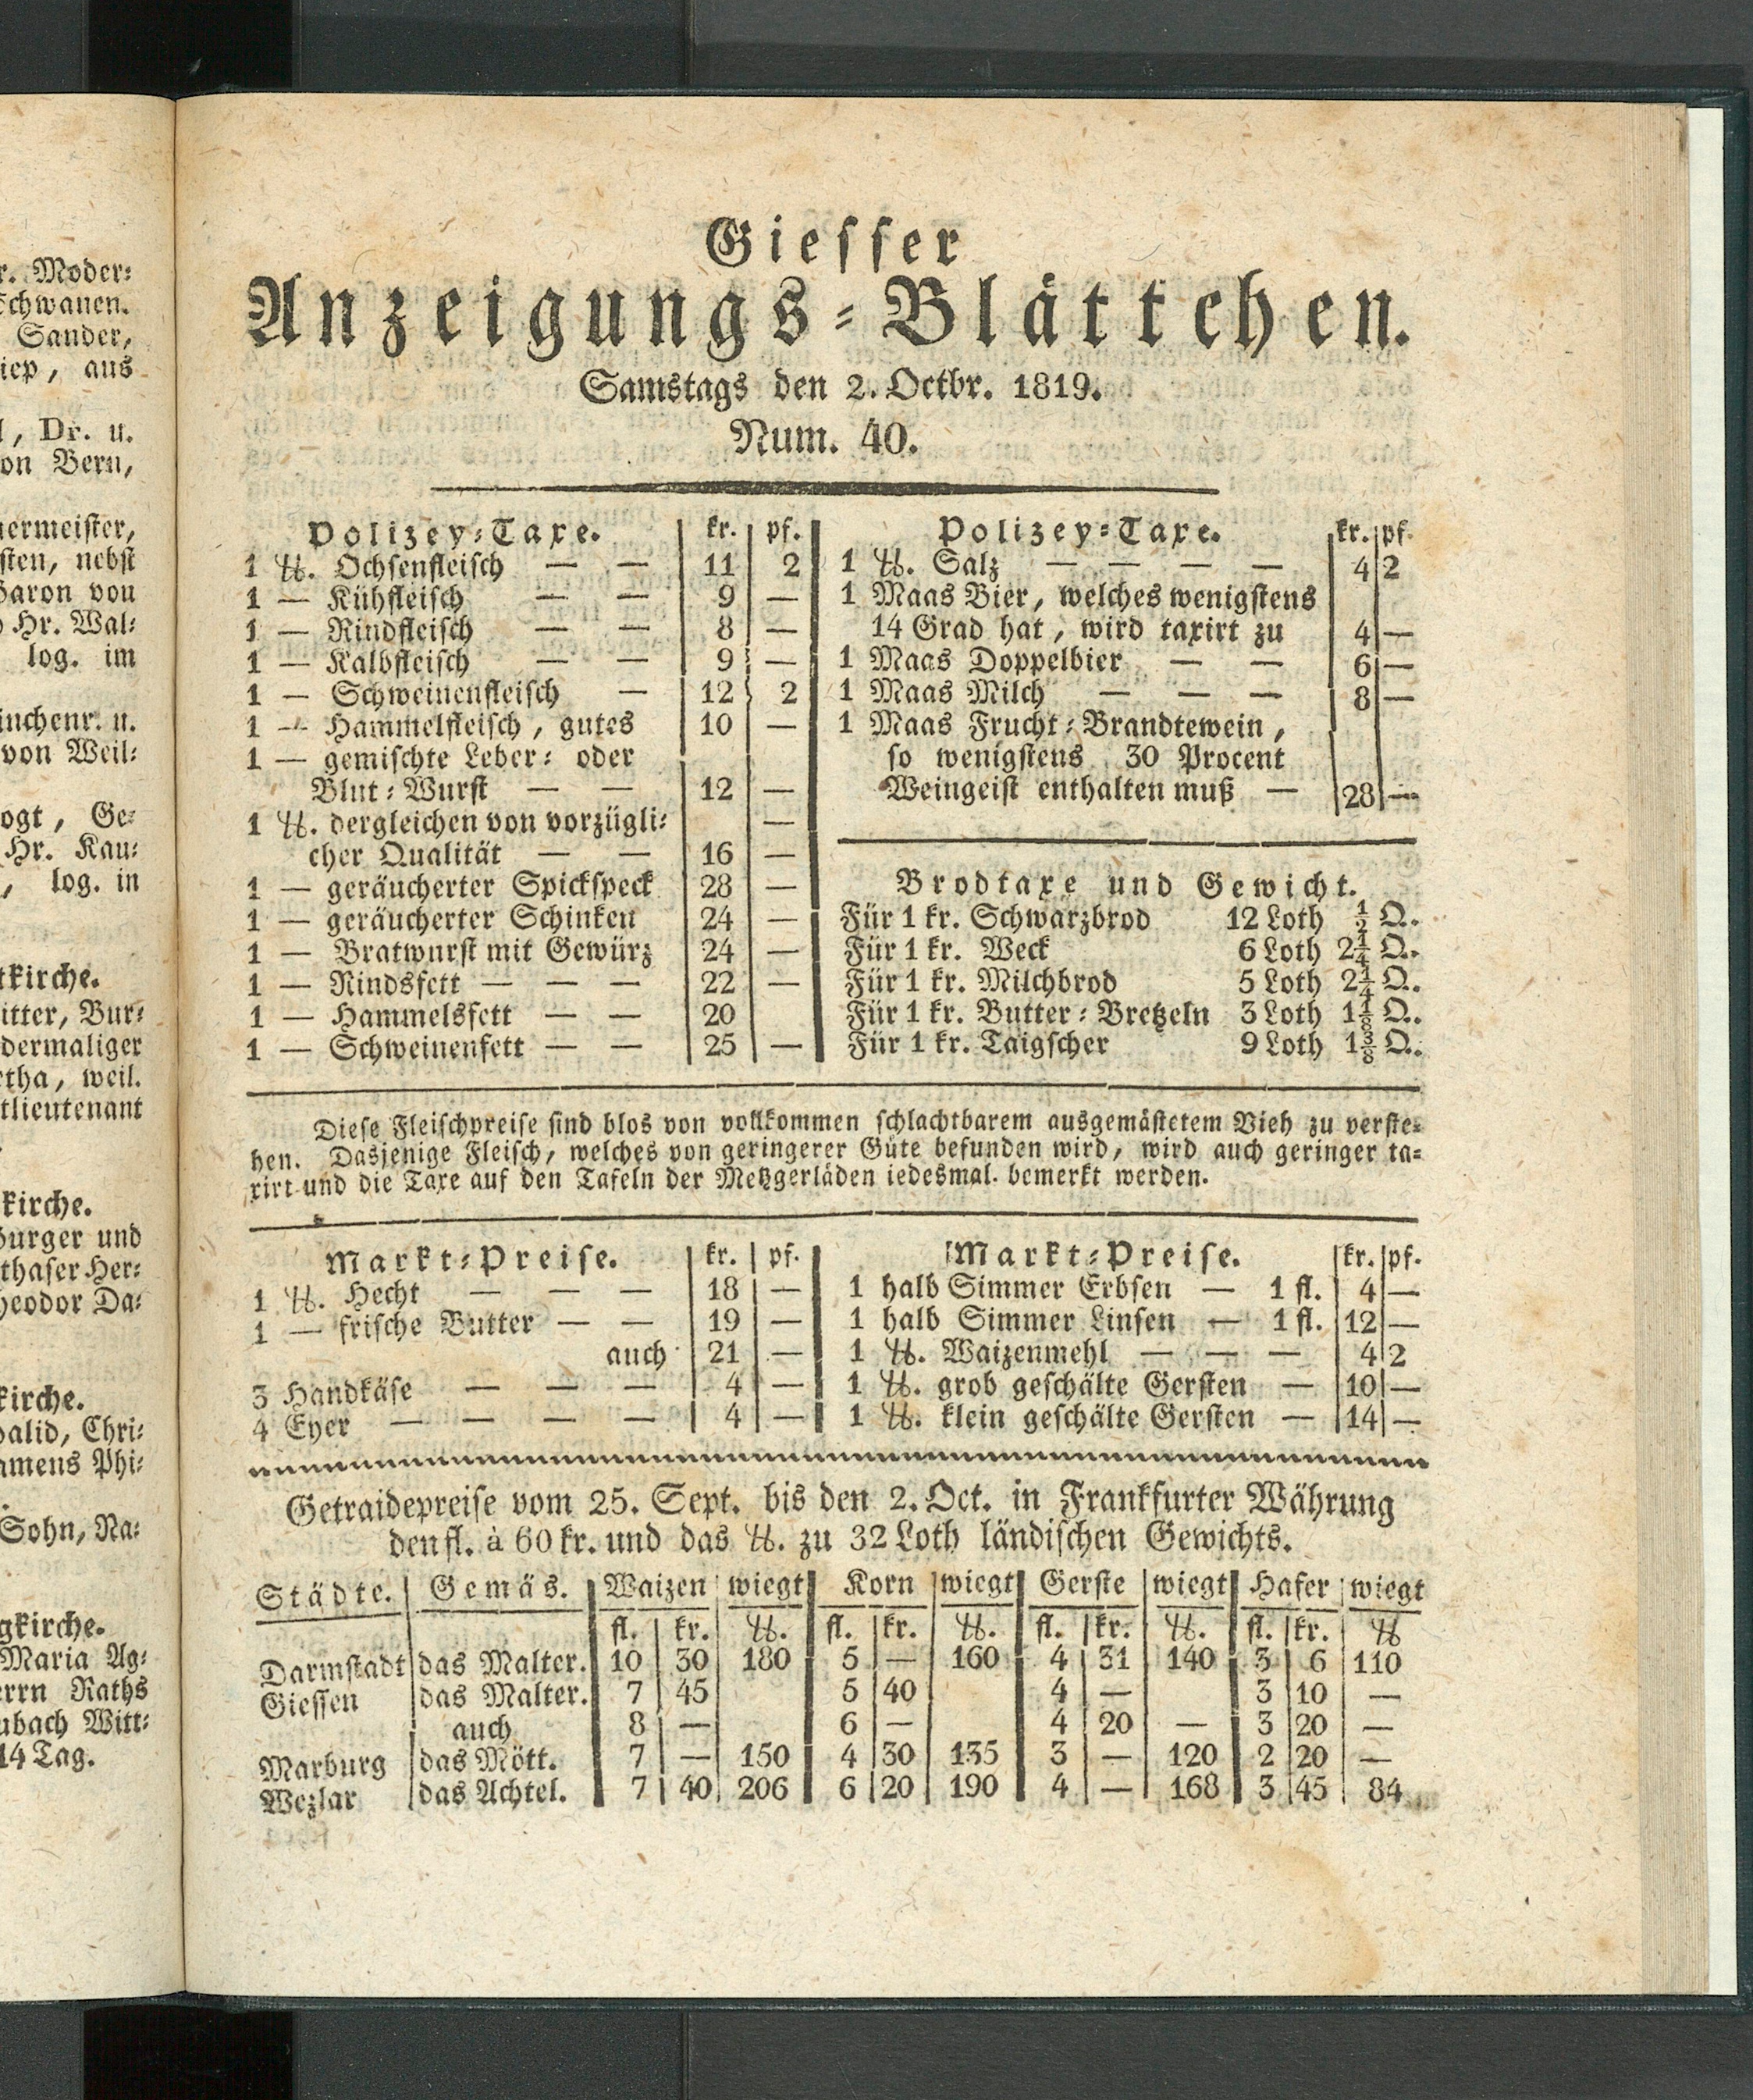 r. Moder⸗
Schwanen.
Sander,
iep, aus
l, Dr. u.
on Bern,
nermeister,
sten, nebst
Baron von
Hr. Wal⸗
log. im
inchenr. u.
von Weil⸗
ogt, Ge⸗
Hr. Kau⸗
, log. in
tkirche.
itter, Bur⸗
dermaliger
etha, weil.
tlieutenant
kirche.
Burger und
thaser Her⸗
heodor Da⸗
kirche.
valid, Chri⸗
amens Phi⸗
Sohn, Na⸗
gkirche.
Maria Ag⸗
errn Raths
ubach Witt⸗
14 Tag.
Giesser
Anzeigungs⸗Blättchen.
Samstags den 2. Octbr. 1819.
Num. 40.
Polizey⸗Taxe. kr. pf.
1 ℔. Ochsenfleisch — — 11 2
1 — Kühfleisch — — 9 —
1 — Rindfleisch — — 8 —
1 — Kalbfleisch — — 9 —
1 — Schweinenfleisch — 12 2
1 — Hammelfleisch, gutes 10 —
1 — gemischte Leber⸗ oder
Blut⸗Wurst — — 12 —
1 ℔. dergleichen von vorzügli⸗ —
cher Qualität — — 16 —
1 — geräucherter Spickspeck 28 —
1 — geräucherter Schinken 24 —
1 — Bratwurst mit Gewürz 24 —
1 — Rindsfett — — — 22 —
1 — Hammelsfett — — 20
1 — Schweinenfett — — 25 —
Polizey⸗Taxe. kr. pf.
1 ℔. Salz — — — — 4 2
1 Maas Bier, welches wenigstens
14 Grad hat, wird taxirt zu 4 —
1 Maas Doppelbier — — 6 —
1 Maas Milch — — — 8 —
1 Maas Frucht⸗Brandtewein,
so wenigstens 30 Procent
Weingeist enthalten muß — 28 —
Brodtaxe und Gewicht.
Für 1 kr. Schwarzbrod 12 Loth ½ Q.
Für 1 kr. Weck 6 Loth 2¼ Q.
Für 1 kr. Milchbrod 5 Loth 2¼ Q.
Für 1 kr. Butter⸗Bretzeln 3 Loth 1⅛ Q.
Für 1 kr. Taigscher 9 Loth 1⅜ Q.
Diese Fleischpreise sind blos von vollkommen schlachtbarem ausgemästetem Vieh zu verste⸗
hen. Dasjenige Fleisch, welches von geringerer Güte befunden wird, wird auch geringer ta⸗
xirt und die Taxe auf den Tafeln der Metzgerläden iedesmal. bemerkt werden.
Markt⸗Preise. kr. pf.
1 ℔. Hecht — — — 18 —
1 — frische Butter — — 19 —
auch 21 —
3 Handkäse — — — 4 —
4 Eyer — — — — 4 —
Markt⸗Preise. kr. pf.
1 halb Simmer Erbsen — 1 fl. 4 —
1 halb Simmer Linsen — 1 fl. 12 —
1 ℔. Waizenmehl — — — 4 2
1 ℔. grob geschälte Gersten — 10 —
1 ℔. klein geschälte Gersten — 14 —
Getraidepreise vom 25. Sept. bis den 2. Oct. in Frankfurter Währung
den fl. à 60 kr. und das ℔. zu 32 Loth ländischen Gewichts.
Städte. Gemäs. Waizen wiegt Korn wiegt Gerste wiegt Hafer wiegt
fl. kr. ℔. fl. kr. ℔. fl. kr. ℔. fl. kr. ℔
Darmstadt das Malter. 10 30 180 5 — 160 4 31 140 3 6 110
Giessen das Malter. 7 45 5 40 4 — 3 10 —
auch 8 — 6 — 4 20 — 3 20 —
Marburg das Mött. 7 — 150 4 30 135 3 — 120 2 20 —
Wezlar das Achtel. 7 40 206 6 20 190 4 — 168 3 45 84